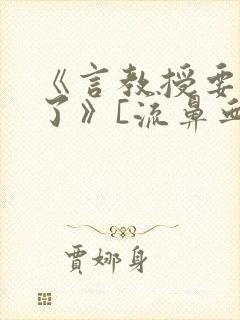 《言教授要
了》[流鼻血
贾娜身